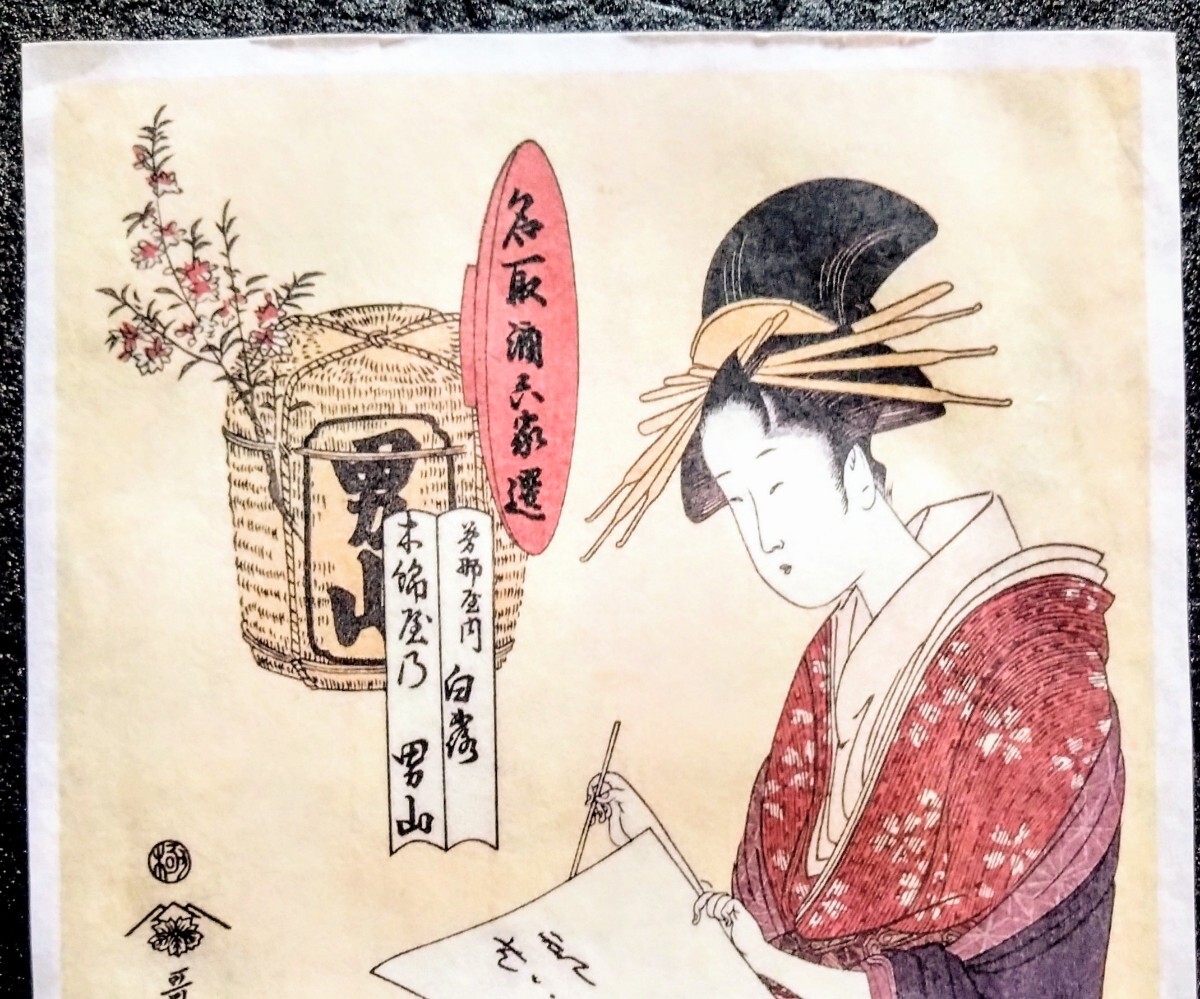 名取酒六家選
若那屋内 白露
木綿屋乃 男山
男山
極
哥